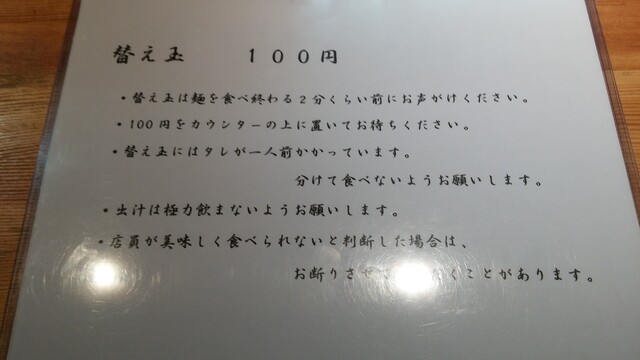 替え玉　　１００円
・替え玉は麺を食べ終わる２分くらい前にお声がけください。
・100円をカウンターの上に置いてお待ちください。
・替え玉にはタレが一人前かかっています。
分けて食べないようお願いします。
・出汁は極力飲まないようお願いします。
・店員が美味しく食べられないと判断した場合は、
お断りさせ　　くことがあります。